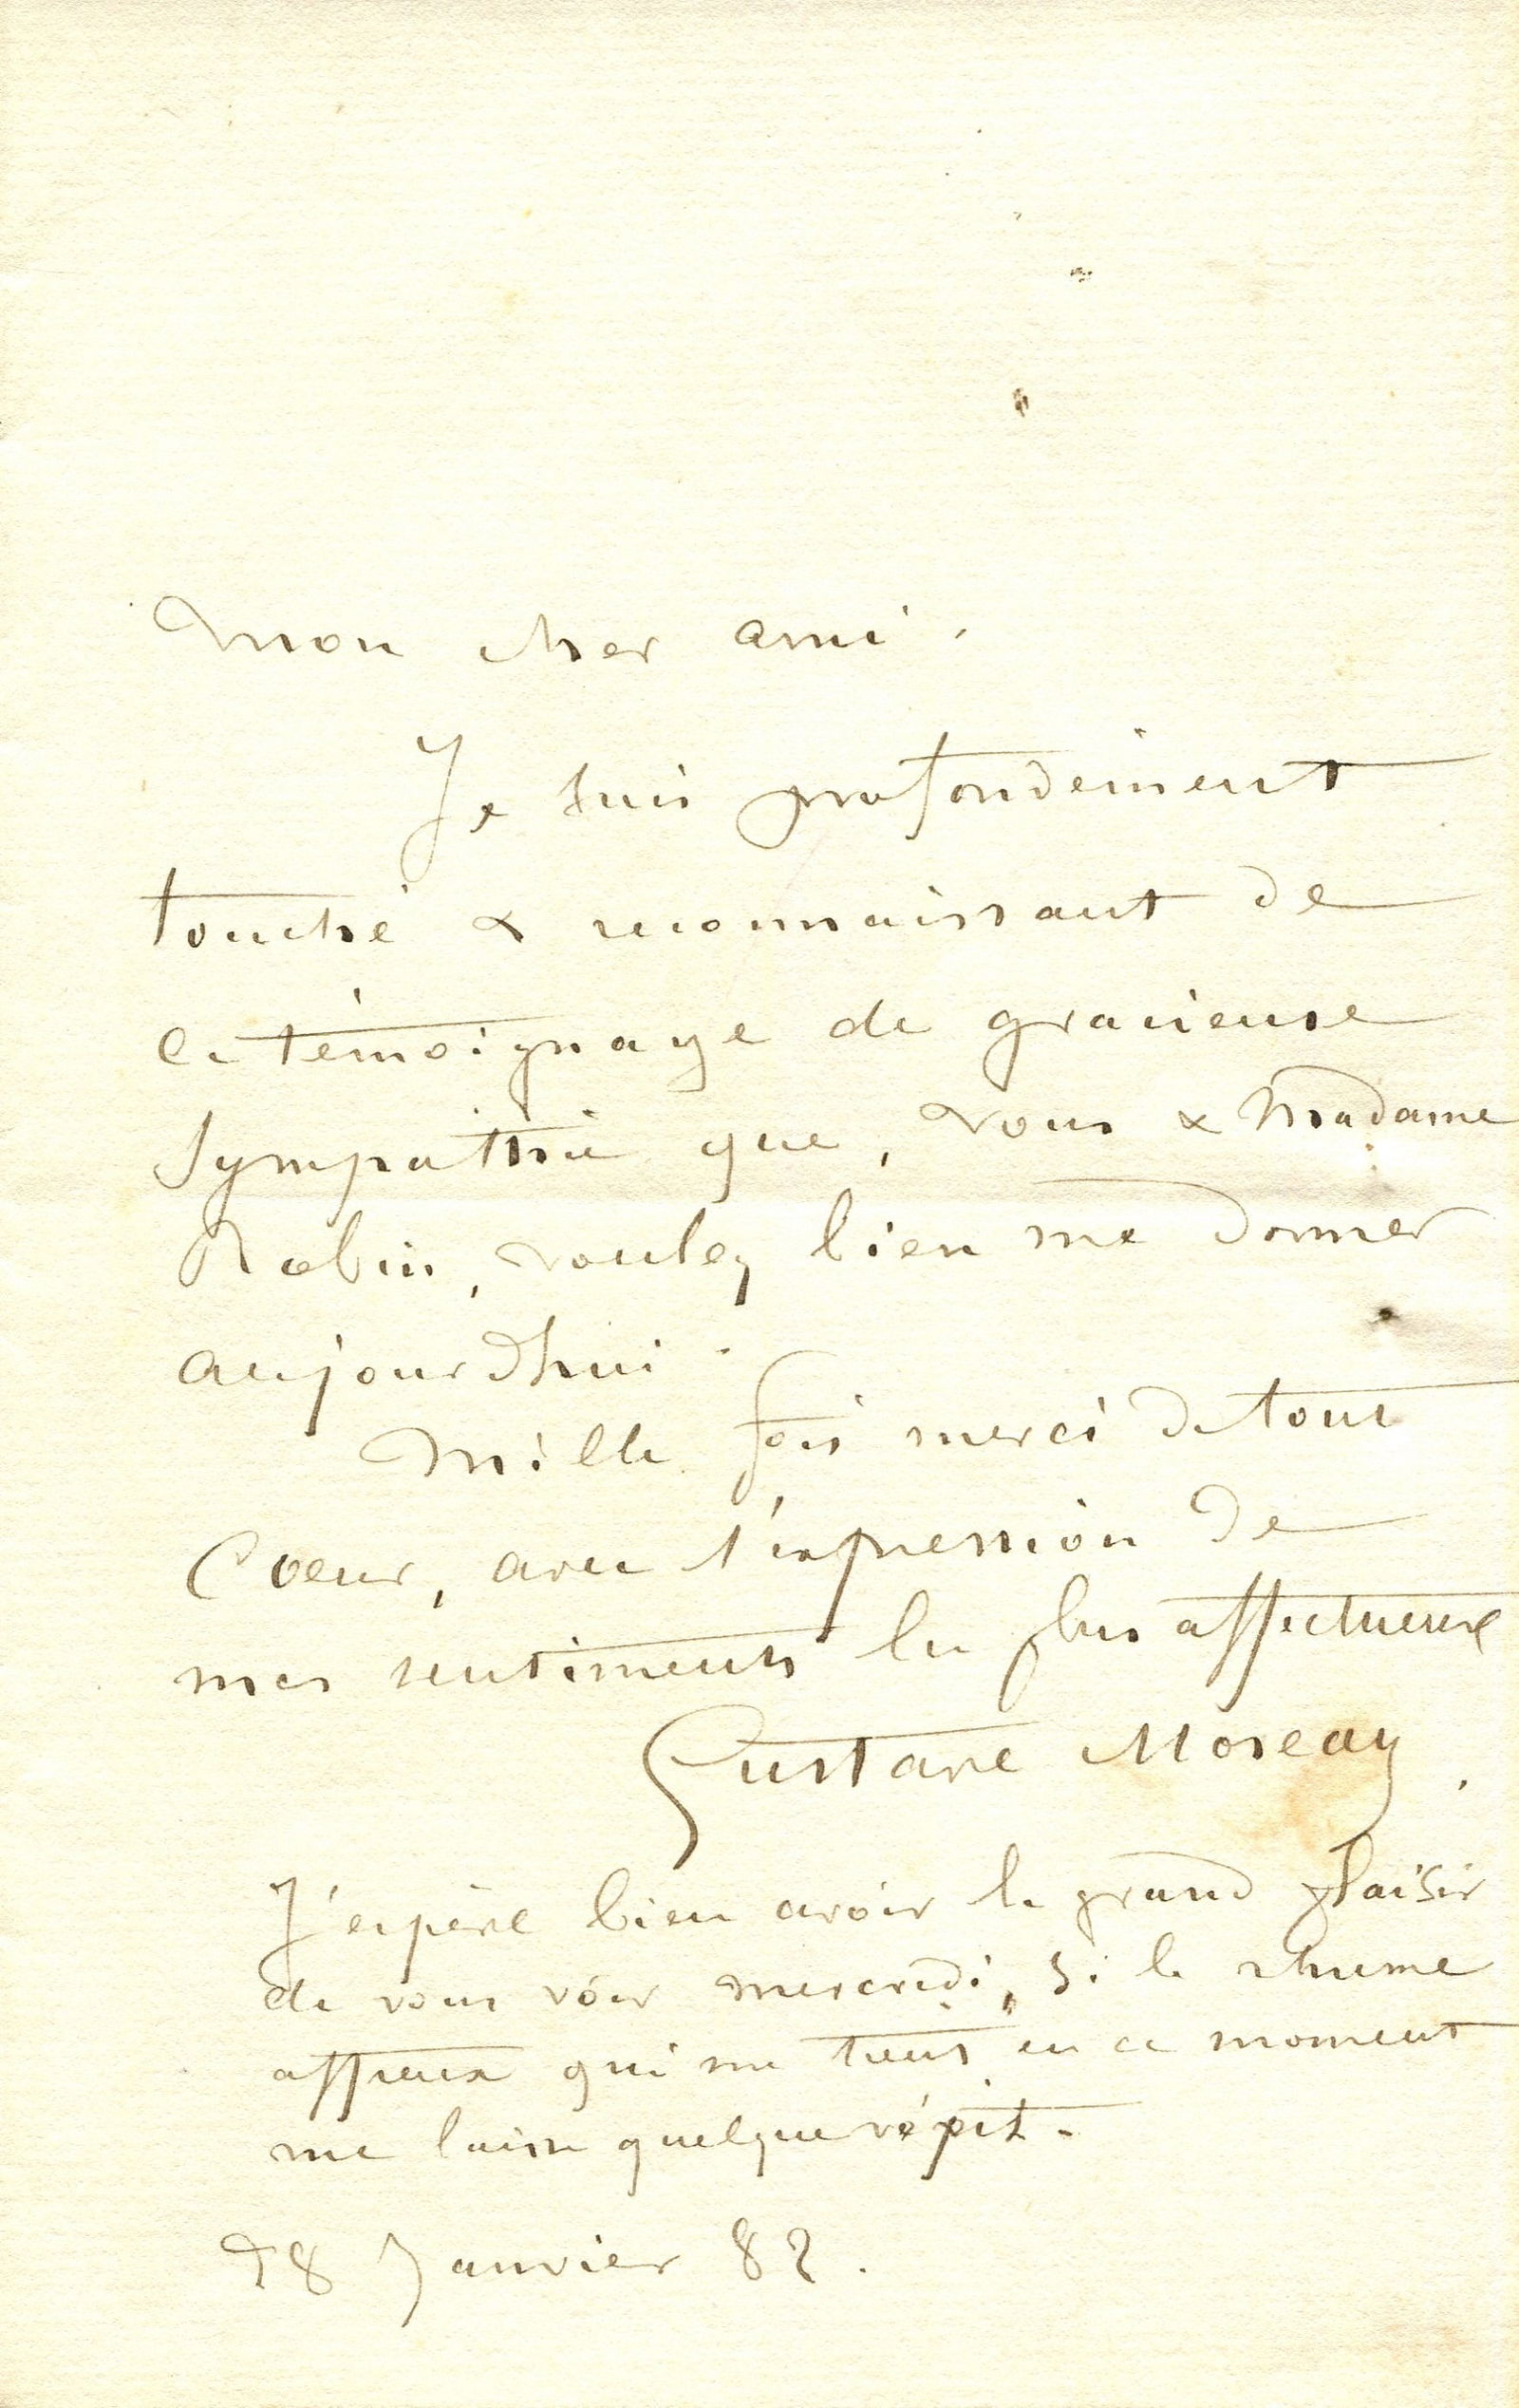 Mon cher ami.
Je suis profondément
touché & reconnaissant de
ce témoignage de gracieuse
sympathie que, vous & Madame
Robin, voulez bien me donner
aujourdhui.
Mille fois merci de tout
Coeur, avec l'expression de
mes sentiments les plus affectueux
Gustave Moreau.
J'espère bien avoir le grand plaisir
de vous voir mercredi, si le rhume
affreux qui me tient en ce moment
me laisse quelque répit.
Janvier